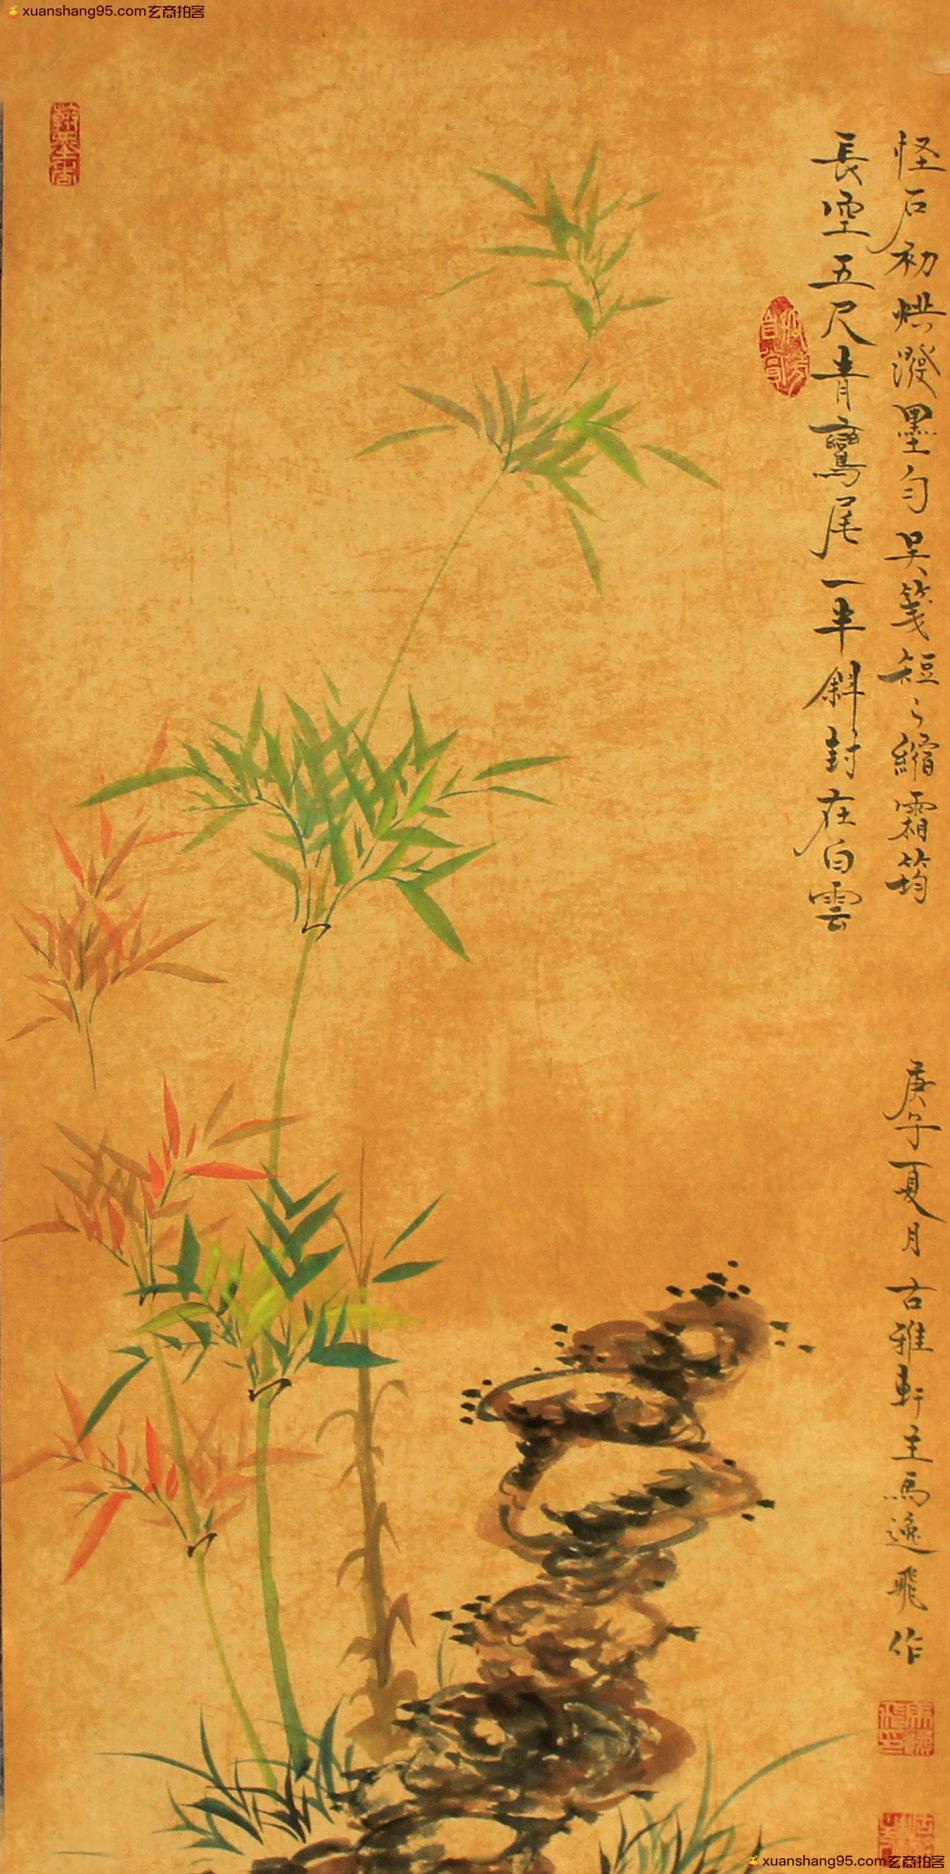 xuanshang95.com玄商拍客
怪石初烘潑墨勻吴箋短〻縮霜筠
長空五尺青鸞尾一半斜封在白雲
庚子夏月古雅軒主馬逸飛作
xuanshang95.com玄商拍客